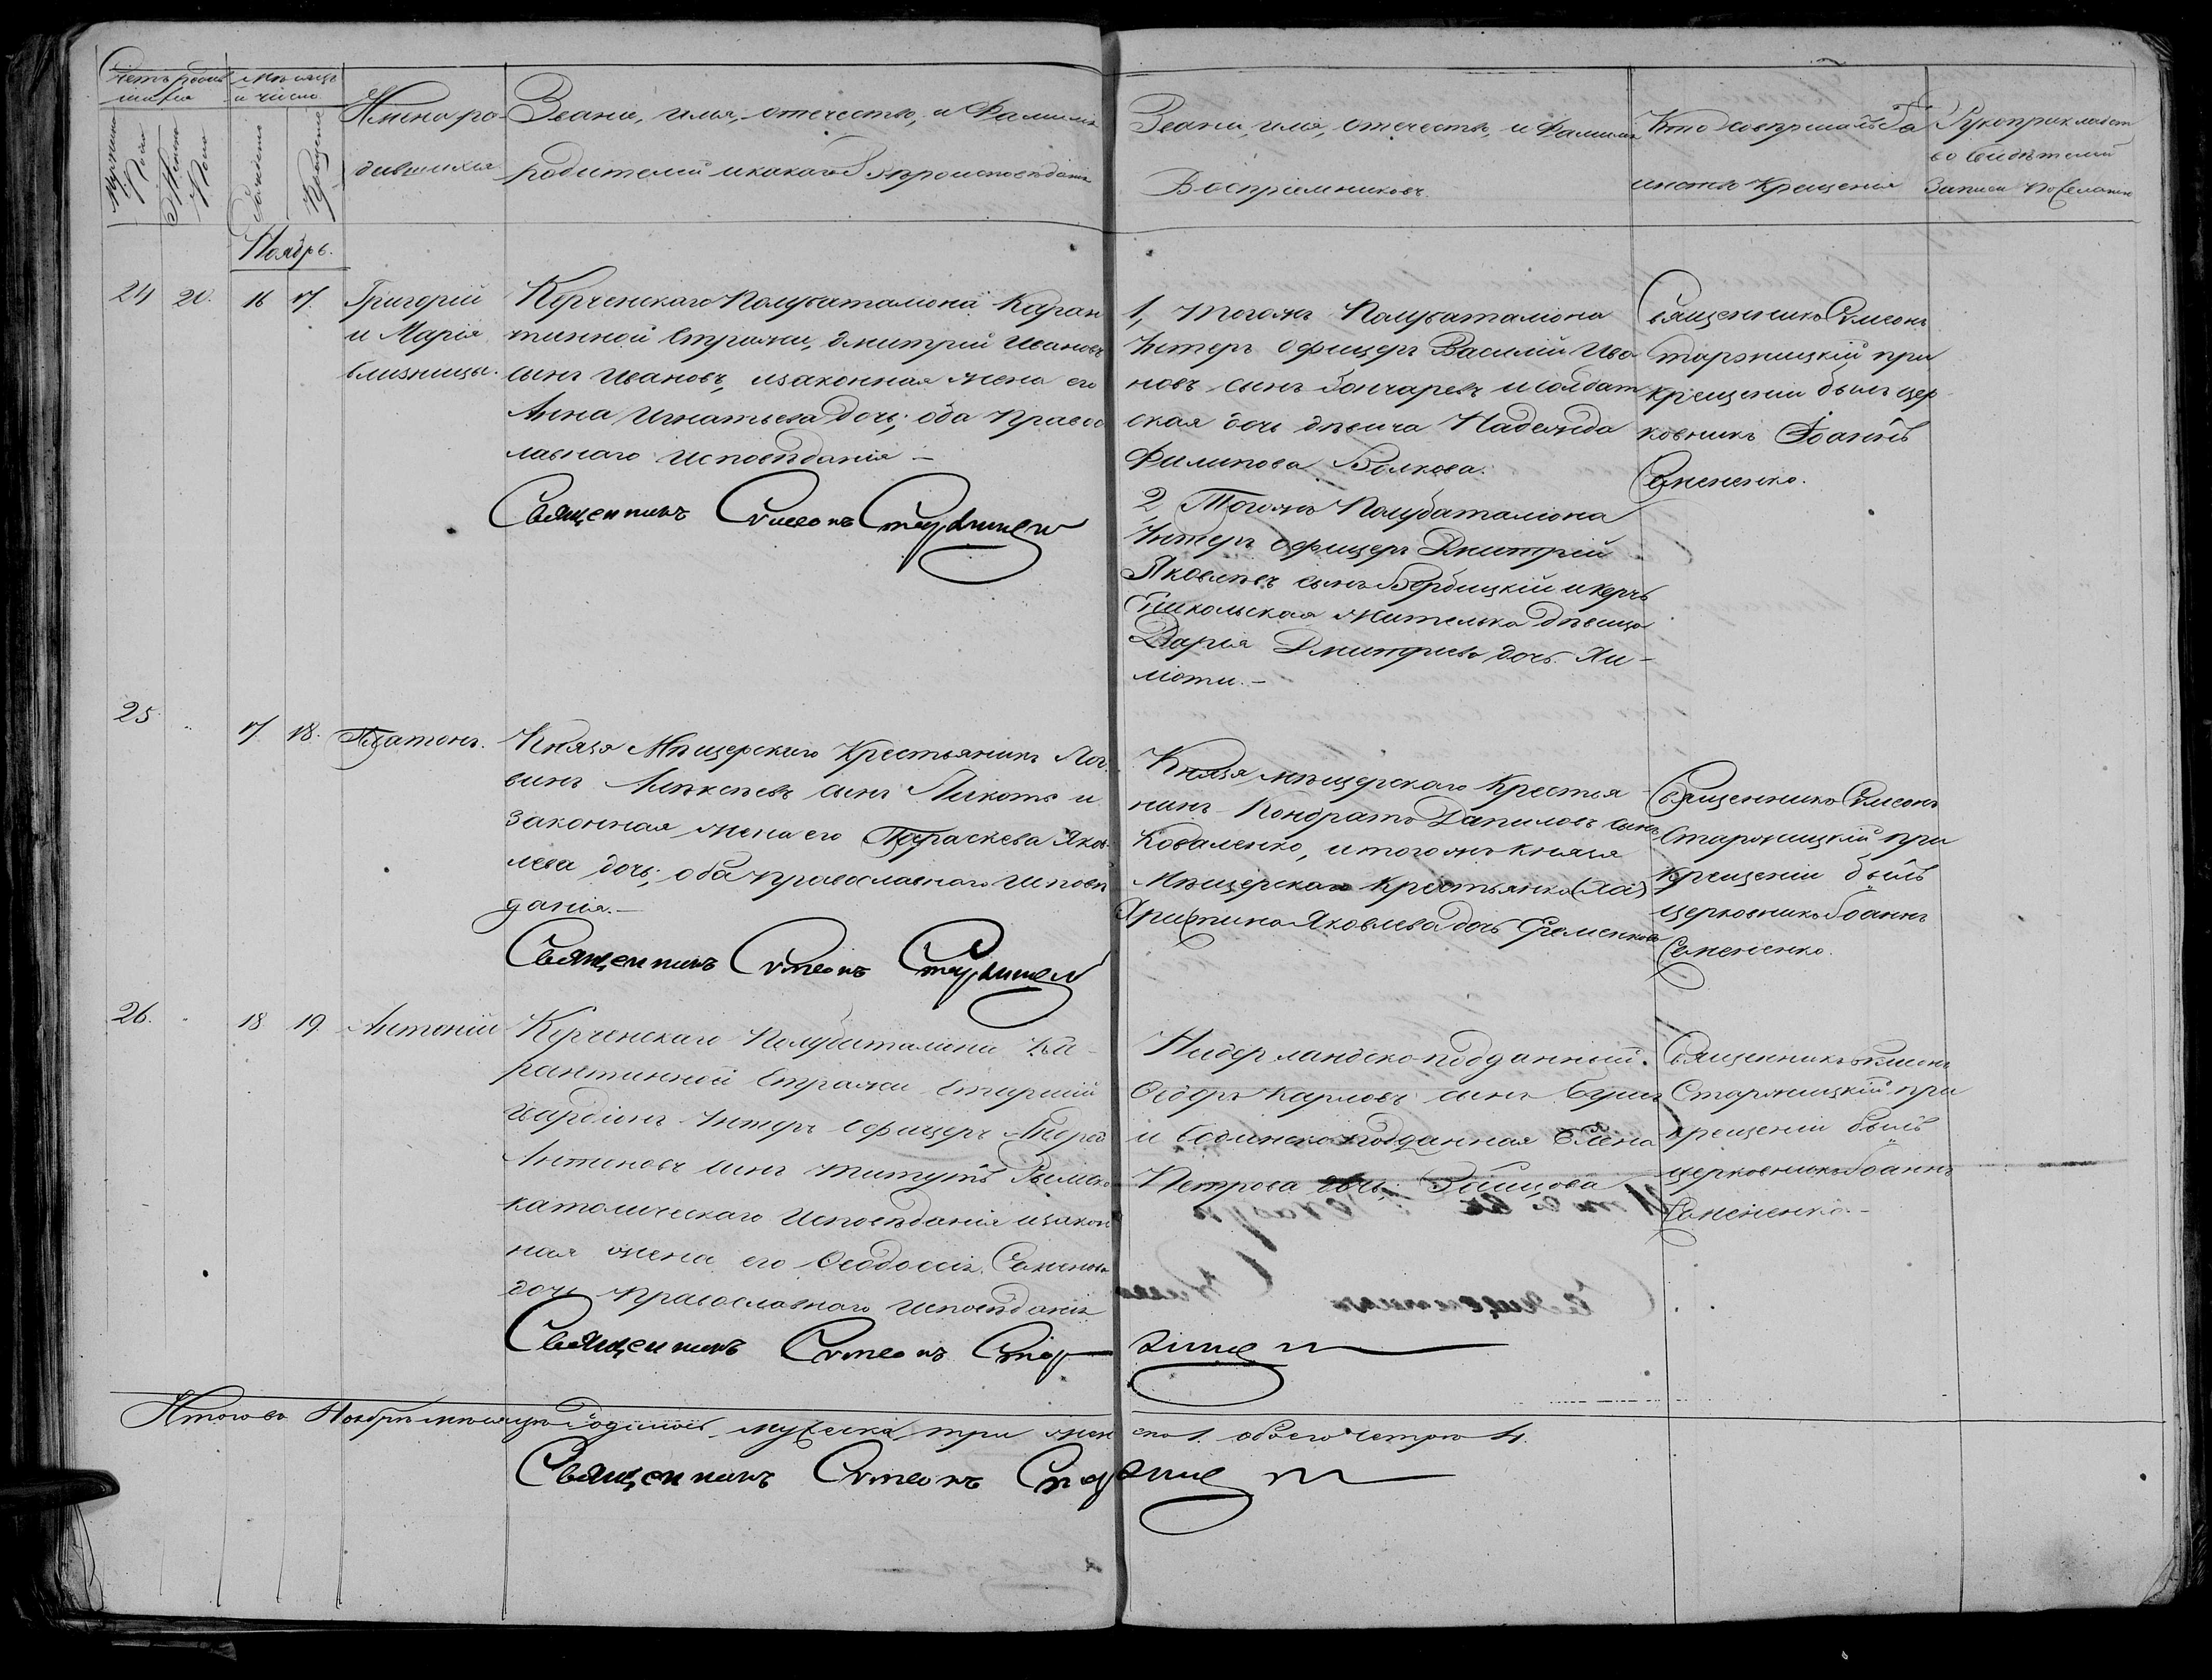 Счетъ родив
шихся
Мѣсяцъ
и число
Мужеска
Пола
Женска
Пола
Рожденія
Крещенія
Имена ро
дившихся
Званіе, имя, отечество, и Фамилія
родителей и какого вѣроисповѣданія
Званіе, имя, отечество, и Фамилія
Воспріемниковъ.
Кто совершалъ Та
инство Крещенія
Рукоприкладст
во свидѣтелей
записи по желанію
Ноябрь.
24 20. 16 17. Григорій
и Марія
близницы.
Керченскаго Полубаталіона Каран
тинной Стражи, Дмитрій Ивановъ
сынъ Ивановъ, и законная жена его
Анна Игнатьева дочь; оба Правос
лавнаго исповѣданія –
Священникъ Сѵмеонъ Стар
1, Тогожъ Полубаталіона
Унтеръ офицеръ Василій Ива
новъ сынъ Гончаревъ и солдат
ская дочь дѣвица Надежда
Филипова Волкова.
2, Тогожъ Полубаталіона
Унтеръ офицеръ Дмитрій
Яковлевъ сынъ Вербицкій и Керчь
Еникольская жителька дѣвица
Дарія Дмитріева дочь Хи-
лоти. –
Священникъ Сѵмеонъ
Старжицкій при
крещеніи былъ цер
ковникъ Іоаннъ
Семененко.
25. 17 18. Платонъ.
Князя Мѣщерскаго Крестьянинъ Лог
винъ Алексѣевъ сынъ и
законная жена его Параскева Яков
лева дочь; оба православнаго исповѣ
данія. –
Священникъ Сѵмеонъ Стар
Князя Мѣщерскаго Крестья
нинъ Кондратъ Даниловъ сынъ
Коваленко, и того жъ Князя
Мѣщерскаго Крестьянка
Христина Яковлева дочь Еременкова
Священникъ Сѵмеонъ
Старжицкій при
Крещеніи былъ
церковникъ Іоаннъ
Семененко.
26. 18 19 Антоній
Керченскаго Полубаталіона Ка-
рантинной Стражи Старшій
Гвардіонъ Унтеръ Офицеръ
Антоновъ сынъ Титутъ Римско
католическаго Исповѣданія и закон
ная жена его Ѳеодосія Семенова
дочь Православнаго исповѣданія
Священникъ Сѵмеонъ Стар
Нидерландско-подданный
Ѳедоръ Карловъ сынъ
и подданная Елена
Петрова дочь
Священникъ Сѵмеонъ
Старжицкій при
крещеніи былъ
церковникъ Іоаннъ
Семененко –
Итого въ Ноябрѣ мѣсяцѣ родилось мужеска три жен ска 1. обоего четыре 4.
Священникъ Сѵмеонъ Стар